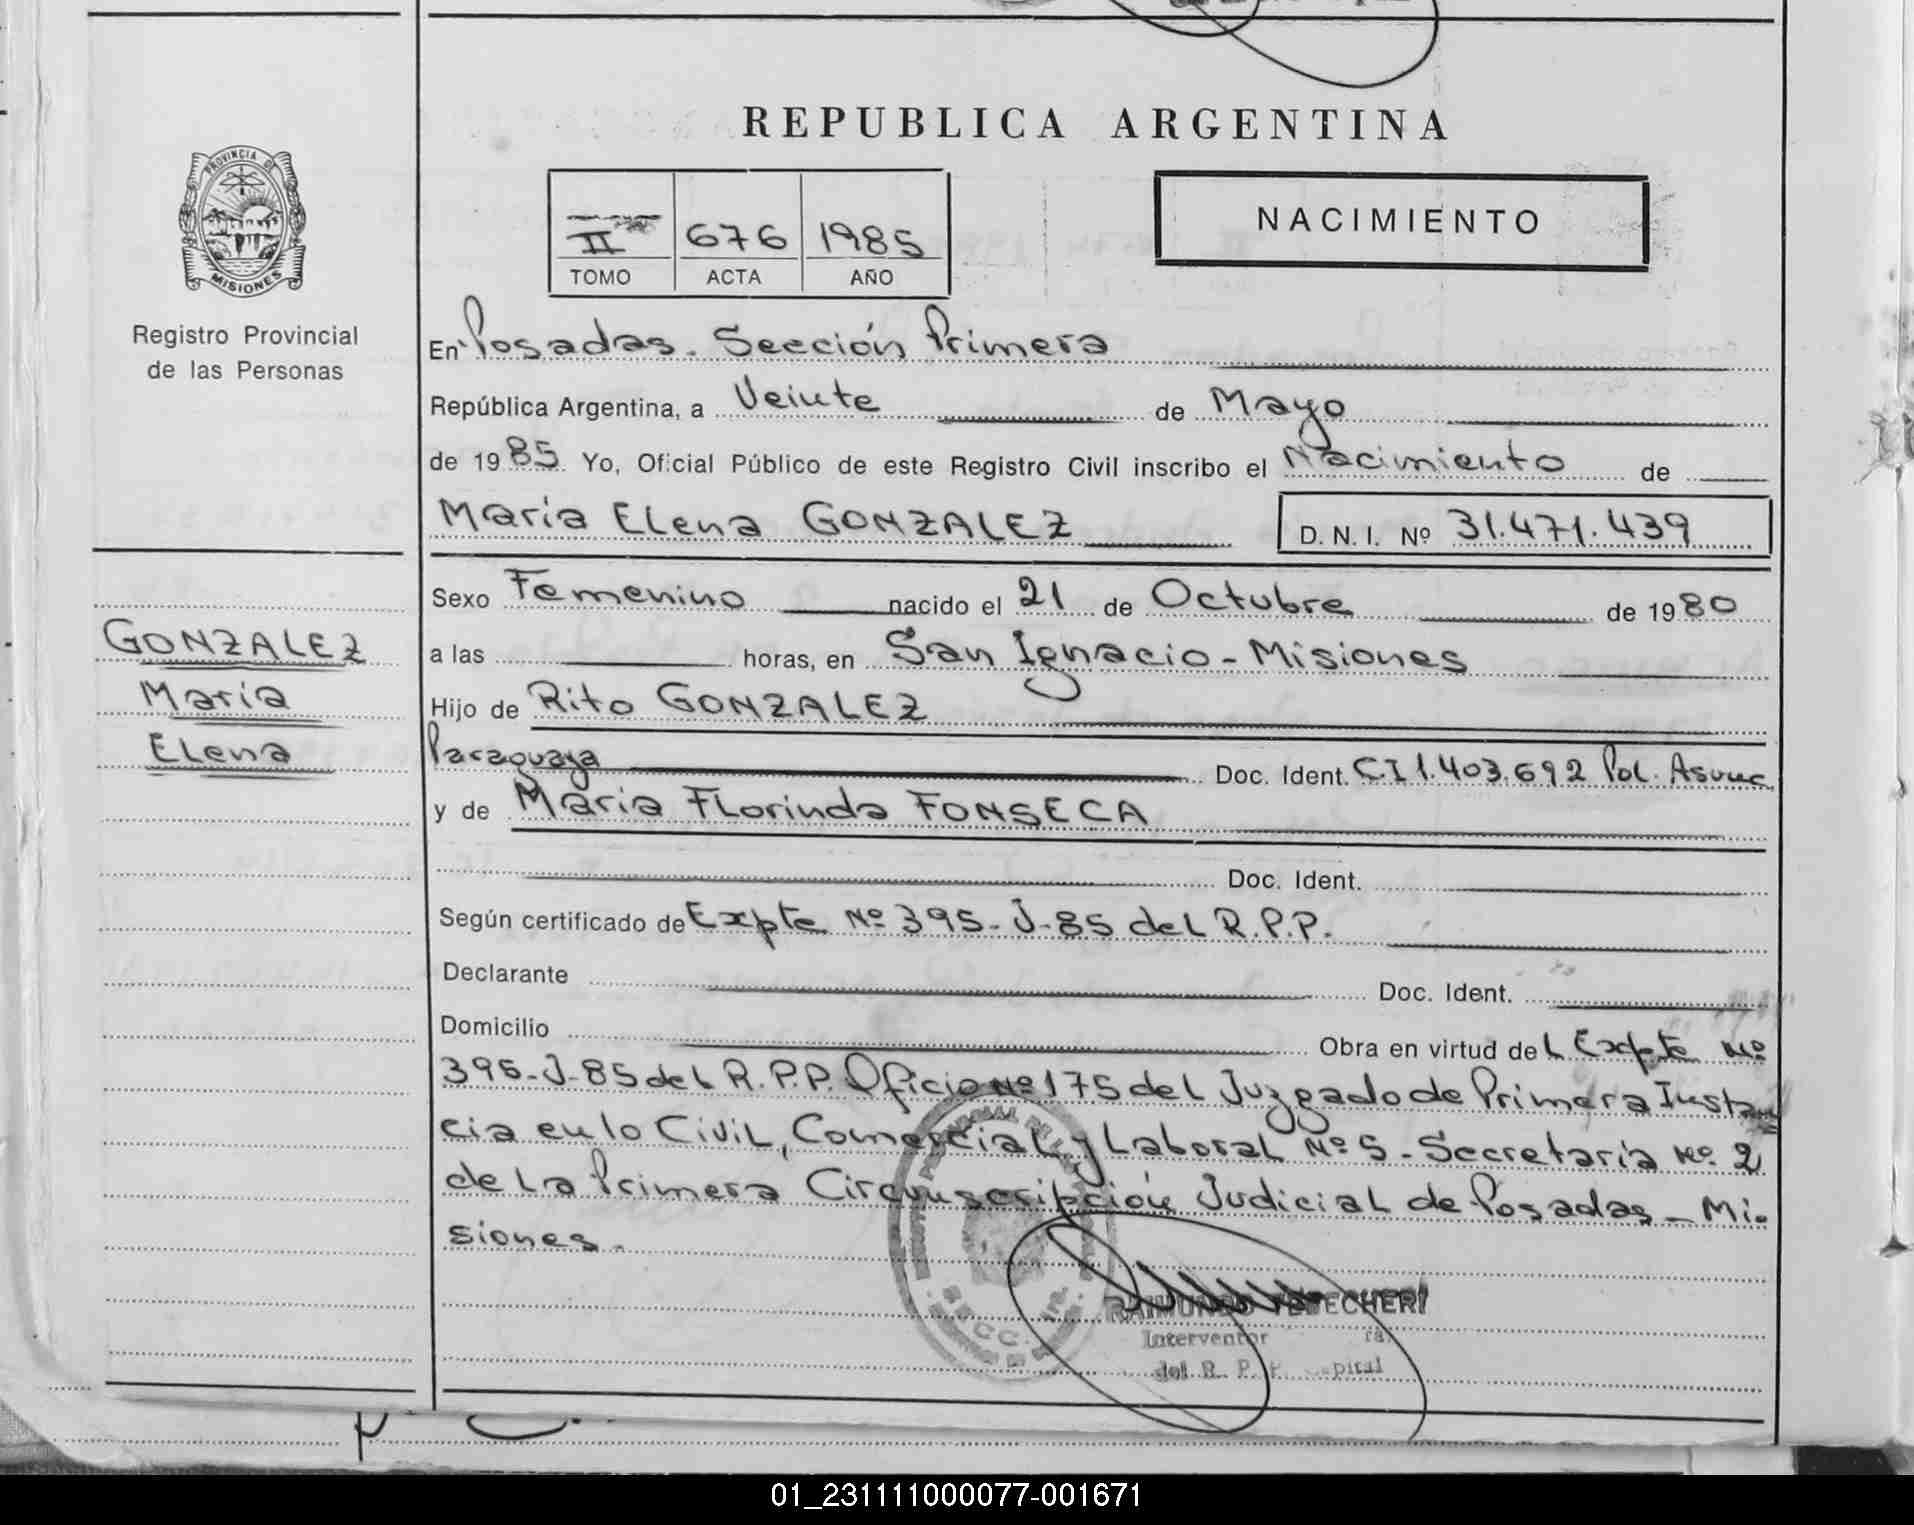 REPUBLICA ARGENTINA
PROVINCIA DE
MISIONES
Registro Provincial
de las Personas
GONZALEZ
María
Elena
II 676 1985
TOMO ACTA AÑO
NACIMIENTO
En Posadas. Sección Primera
República Argentina, a Veinte de Mayo
de 1985. Yo, Oficial Público de este Registro Civil inscribo el Nacimiento de
María Elena GONZALEZ D. N. I. Nº 31.471.439
Sexo Femenino nacido el 21 de Octubre de 1980
a las horas, en San Ignacio - Misiones
Hijo de Rito GONZALEZ
Paraguaya Doc. Ident. C.I 1.403.692 Pol. Asunc.
y de María Florinda FONSECA
Doc. Ident.
Según certificado de Expte Nº 395-J-85 del R.P.P.
Declarante Doc. Ident.
Domicilio Obra en virtud del Expte Nº
395-J-85 del R.P.P. Oficio Nº 175 del Juzgado de Primera Instan
cia en lo Civil, Comercial y Laboral Nº 5 - Secretaría Nº 2
de la Primera Circunscripción Judicial de Posadas - Mi-
siones.
RAIMUNDO
Interventor
del R. P. P.
01_231111000077-001671